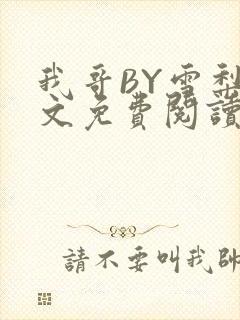 我哥BY雪梨
文免費閱讀
請不要叫我帥